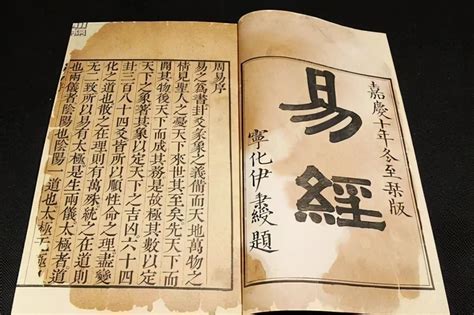 嘉慶十年冬至栞版
易經
寧化伊秉綬題
周易序
易之為書卦爻彖象之義備而天地萬物之
情見聖人之憂天下來世其至矣先天下而開
其物後天下而成其務是故極其數以定
天下之象著其象以定天下之吉凶六十四
卦三百八十四爻皆所以順性命之理盡變
化之道也散之在理則有萬殊統之在道則
无二致所以易有太極是生兩儀太極者道
也兩儀者陰陽也陰陽一道也太極无極